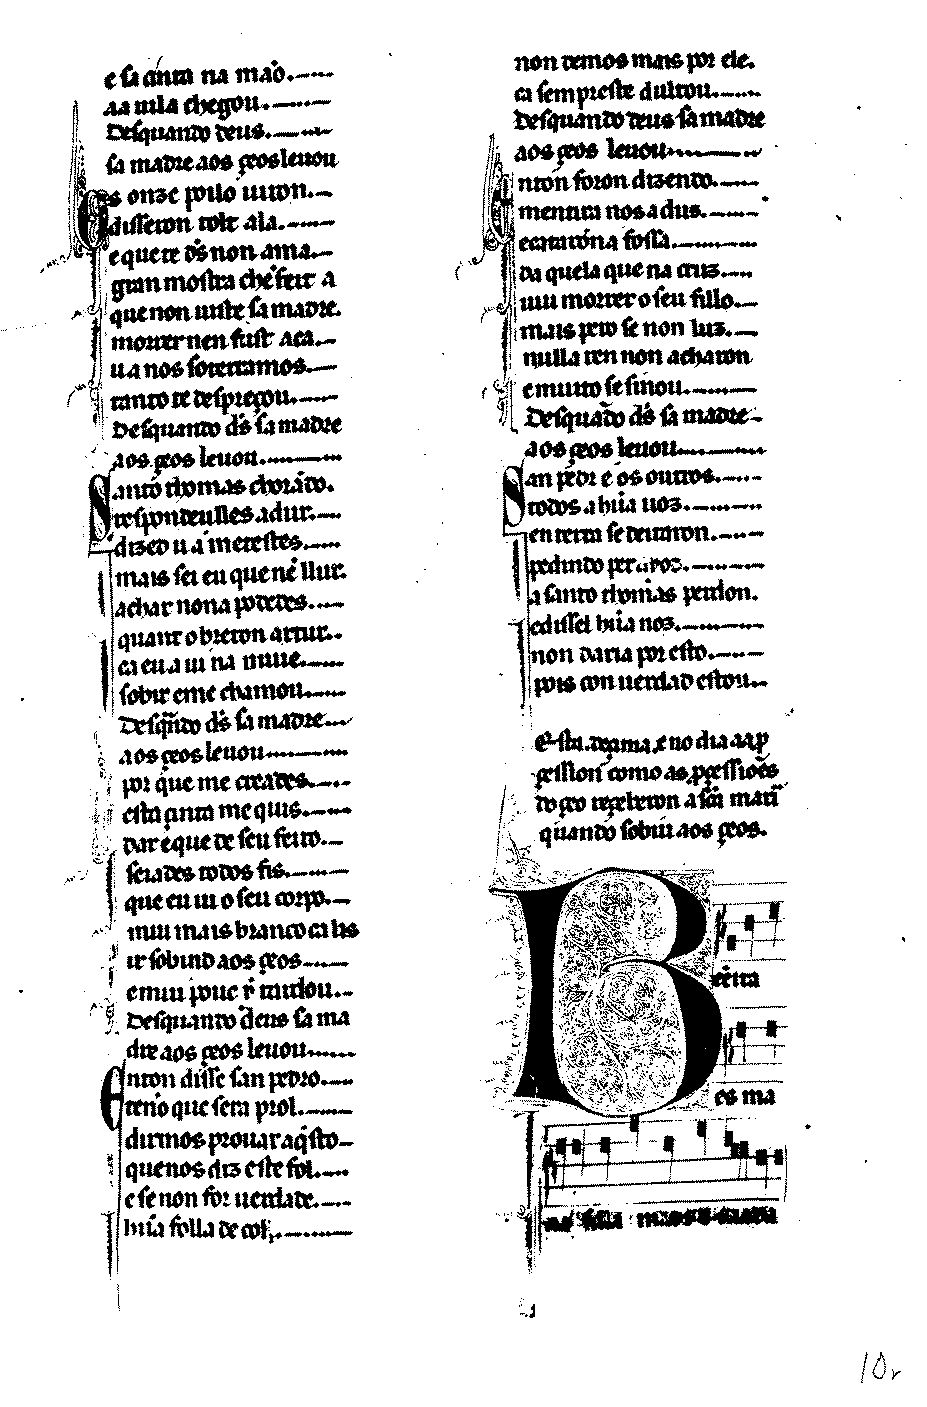 e sa cinta na mão.
aa uila chegou.
Desquando deus.
sa madre aos çeos leuou
Os onze poilo uiron.
disseron tolt ala.
e que te d's non ama.
gran mostra ch'e feit a
que non uiste sa madre.
morrer nen fust aca.
u a nos soterramos.
tanto te despreçou.
Desquando d's sa madre
aos çeos leuou.
Santo thomas chorãdo.
respondeulles adur.
dized u a metestes.
mais sei eu que nẽ llur.
achar nona podedes.
quant obreron artur.
ca eu a ui na nuue.
sobir e me chamou.
Desq̃ndo d's sa madre
aos çeos leuou
por que me creades.
esta cinta me quis.
dar e que de seu feito.
seiades todos fis.
que eu ui o seu corpo.
mui mais branco ca lis
ir sobind aos çeos
e mui pouc y tardou.
Desquando deus sa ma
dre aos çeos leuou.
Enton disse san pedro.
tenio que sera prol.
dirmos prouar aq̃sto
que nos diz este fol.
e se non for uerdade.
hũa folla de col.
non demos mais por ele.
ca sempreste dultou.
Desquando deus sa madre
aos çeos leuou
Enton foron dizendo.
mentira nos adus.
e cataron a fossa.
da quela que na cruz.
uiu morrer o seu fillo.
mais pero se non luz.
nulla ren non acharon
e muito se sinou.
Desquãdo d's sa madre
aos çeos leuou.
San pedr e os outros.
todos a hũa uoz.
en terra se deitaron.
pedindo per
a santo thomas perdon.
e dissel hũa noz.
non daria por esto.
pois con uerdad estou.
Esta deçima, e no dia aa p̃
çission como as p̃çissiões
do çeo reçeberon a sc̃a mari
quando sobiu aos çeos.
Bẽeita
es ma
ria filla
10r